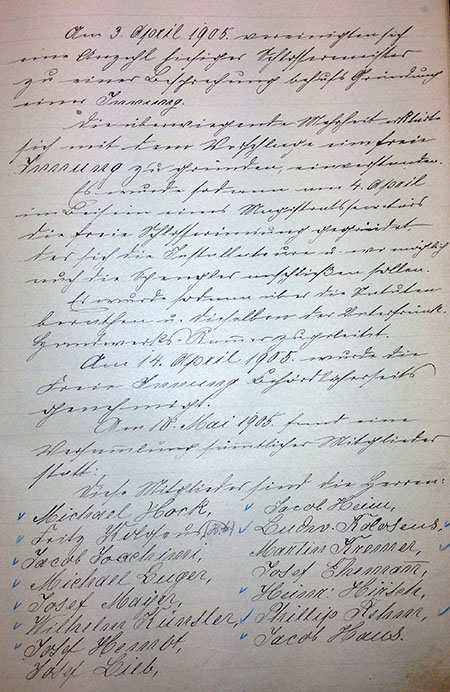 Am 3. April 1905. vereinigten sich
eine Anzahl hiesiger Schlossermeister
zu einer Besprechung behufs Gründung
einer Innung.
Die überwiegende Mehrheit erklärte
sich mit dem Vorschlage eine freie
Innung zu gründen, einverstanden.
Es wurde sodann am 4. April
im Beisein eines Magistratssecretärs
die freie Schlosserinnung gegründet
der sich die Installateure u. wo möglich
auch die Spengler anschließen sollen.
Es wurde sodann über die Statuten
berathen u. dieselben der Unterfränk.
Handwerks-Kammer zugeleitet.
Am 14. April 1905. wurde die
Freie Innung behördlicherseits
genehmigt.
Am 18. Mai 1905. fand eine
Versammlung sämtlicher Mitglieder
statt.
Diese Mitglieder sind die Herren:
Michael Hock,
Fritz
Jacob Joachimi,
Michael Luger,
Josef Mayer,
Wilhelm Künsler,
Josef
Josef Lieb,
Jacob Heim,
Ludw. Kloseus,
Martin Kremer,
Josef Ehmann,
Heinr. Hirsch,
Phillip
Jacob Haus.